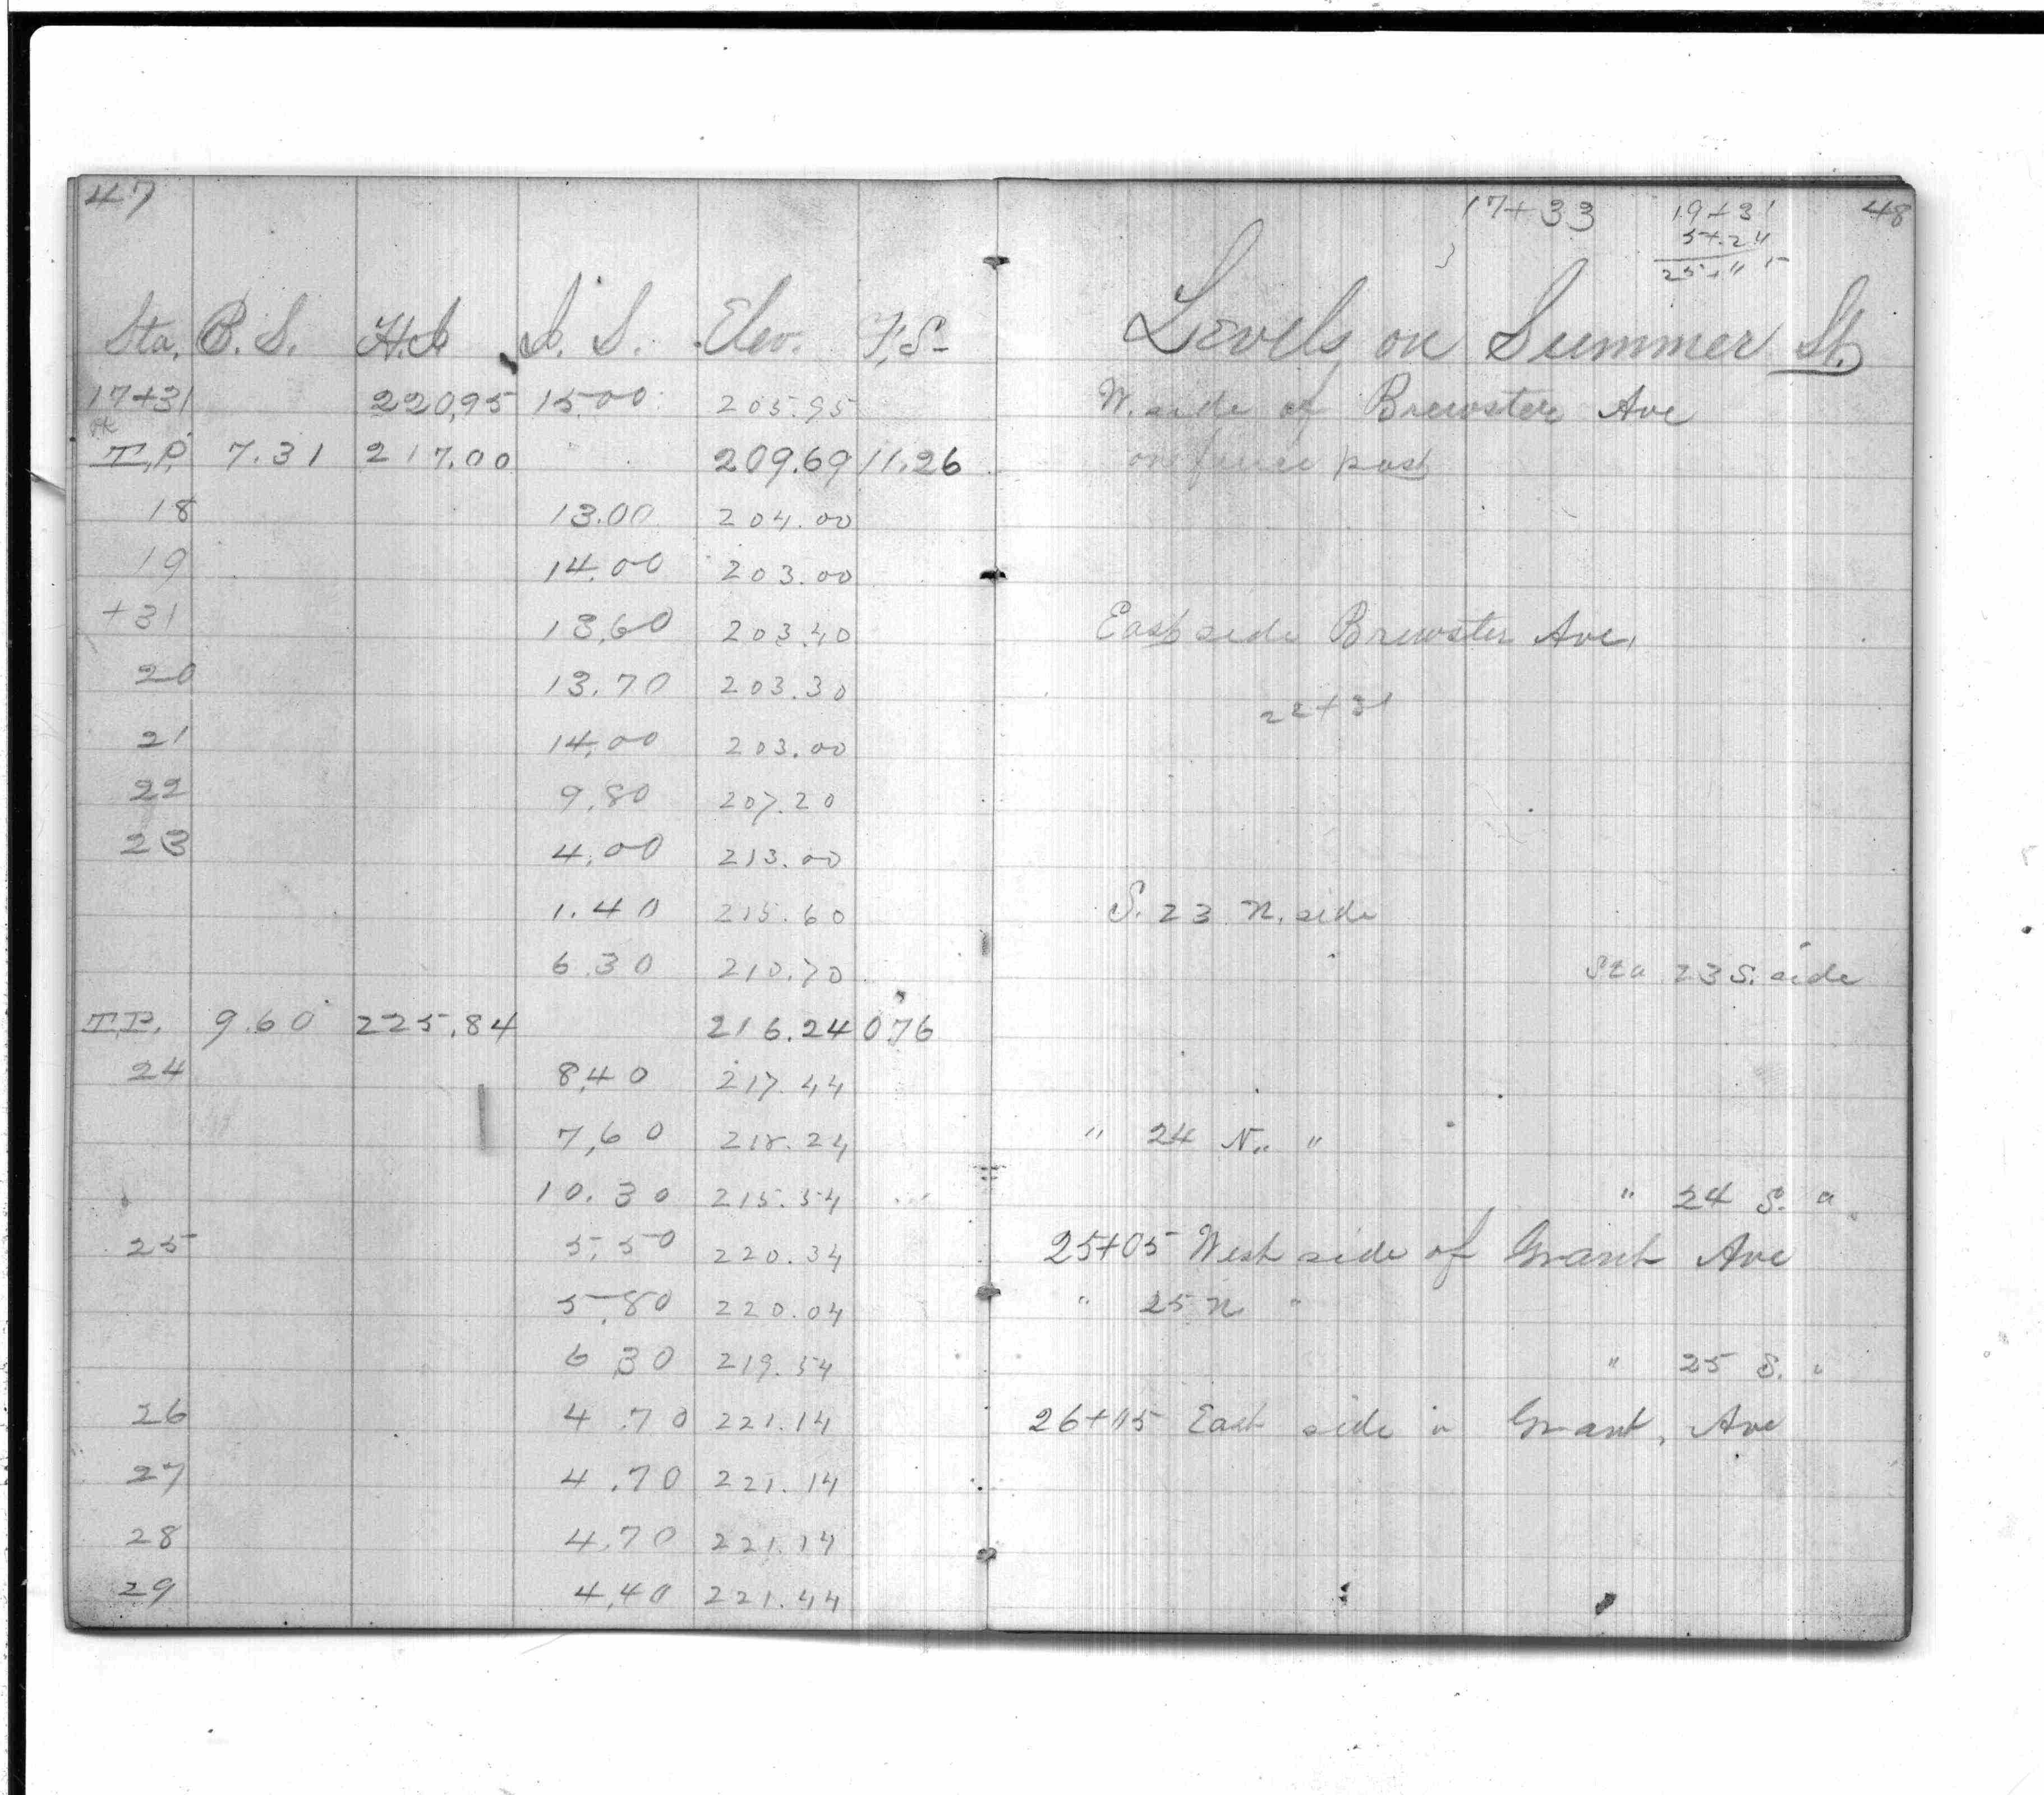 47
Sta. B.S. H.I. I.S. Elev. F.S.
17+31 220.95 15.00 205.95
OK
T.P. 7.31 217.00 209.69 11.26
18 13.00 204.00
19 14.00 203.00
+31 13.60 203.40
20 13.70 203.30
21 14.00 203.00
22 9.80 207.20
23 4.00 213.00
1.40 215.60
6.30 210.70
T.P. 9.60 225.84 216.24 0.76
24 8.40 217.44
7.60 218.24
10.30 215.54
25 5.50 220.34
5.80 220.04
6.30 219.54
26 4.70 221.14
27 4.70 221.14
28 4.70 221.14
29 4.40 221.44
17+33 19+31 48
5+24
Levels on Summer St.
W. side of Brewster Ave
on fence post
East side Brewster Ave.
22+31
S. 23 N. side
Sta 23 S. side
" 24 N. "
" 24 S. "
25+05 West side of Grant Ave
" 25 N "
" 25 S. "
26+15 East side " Grant, Ave